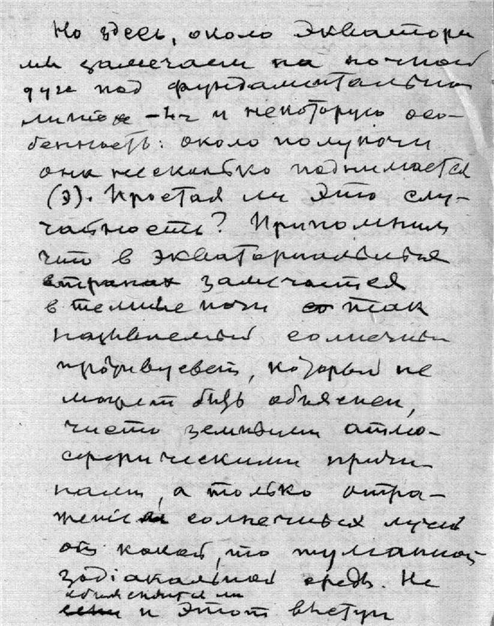 Но здесь, около экватора
мы замечаем на ночной
дуге под фундаментальной
линией и некоторую осо-
бенность: около полуночи
она несколько поднимается
(э). Простая ли это слу-
чайность? Припомним
что в экваториальных
странах замечается
в темные ночи так
называемый солнечный
противусвет, который не
может быть объяснен,
чисто земными атмо-
сферическими причи-
нами, а только отра-
жением солнечных лучей
от какой то туманной
зодіакальной среды. Не
объясняется ли
и этот выступ